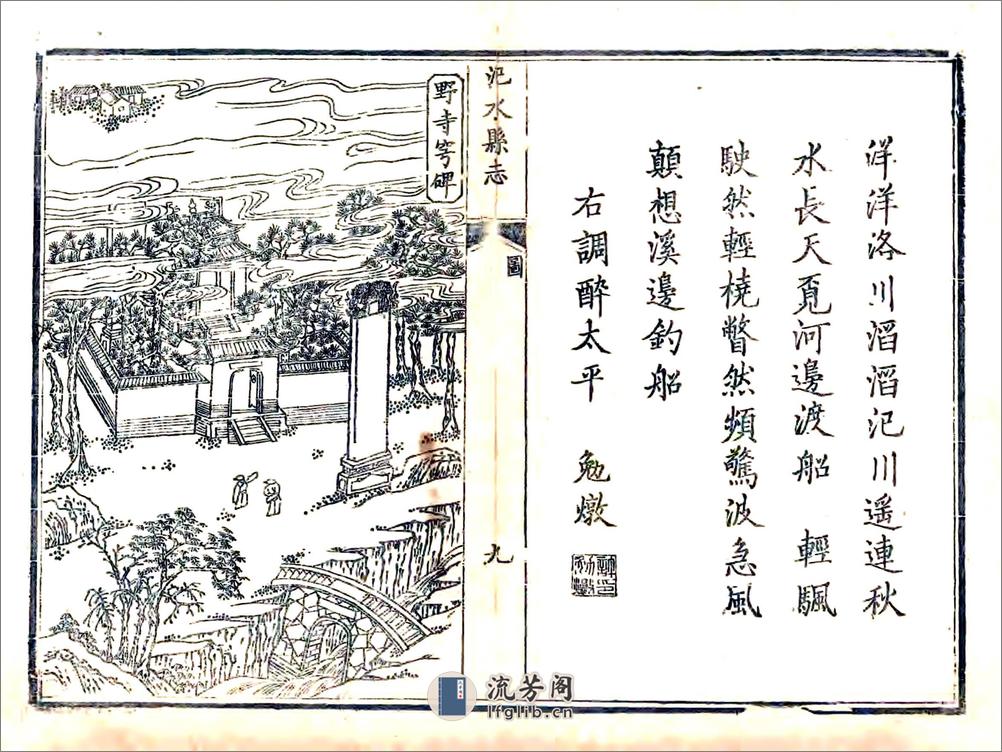 洋洋洛川滔滔汜川遥連秋
水長天覓河邊渡船　輕颿
駛然輕橈瞥然頻驚波急風
顛想溪邊釣船
右調醉太平　勉燉
汜水縣志
圖
九
野寺穹碑
流芳阁
lfglib.cn